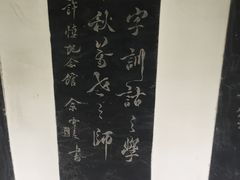 字訓詁之學
秋万世之師
許慎紀念館 余
書